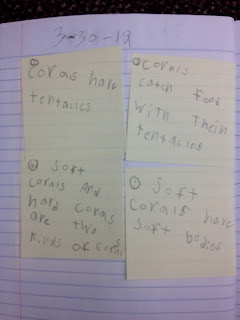 3-30-12
① Coras have
tentacles
② Cornis
catch food
with their
tentacles
④ Soft
corals And
hard coras
are two
kinds of corals
① Soft
corals have
soft bodies